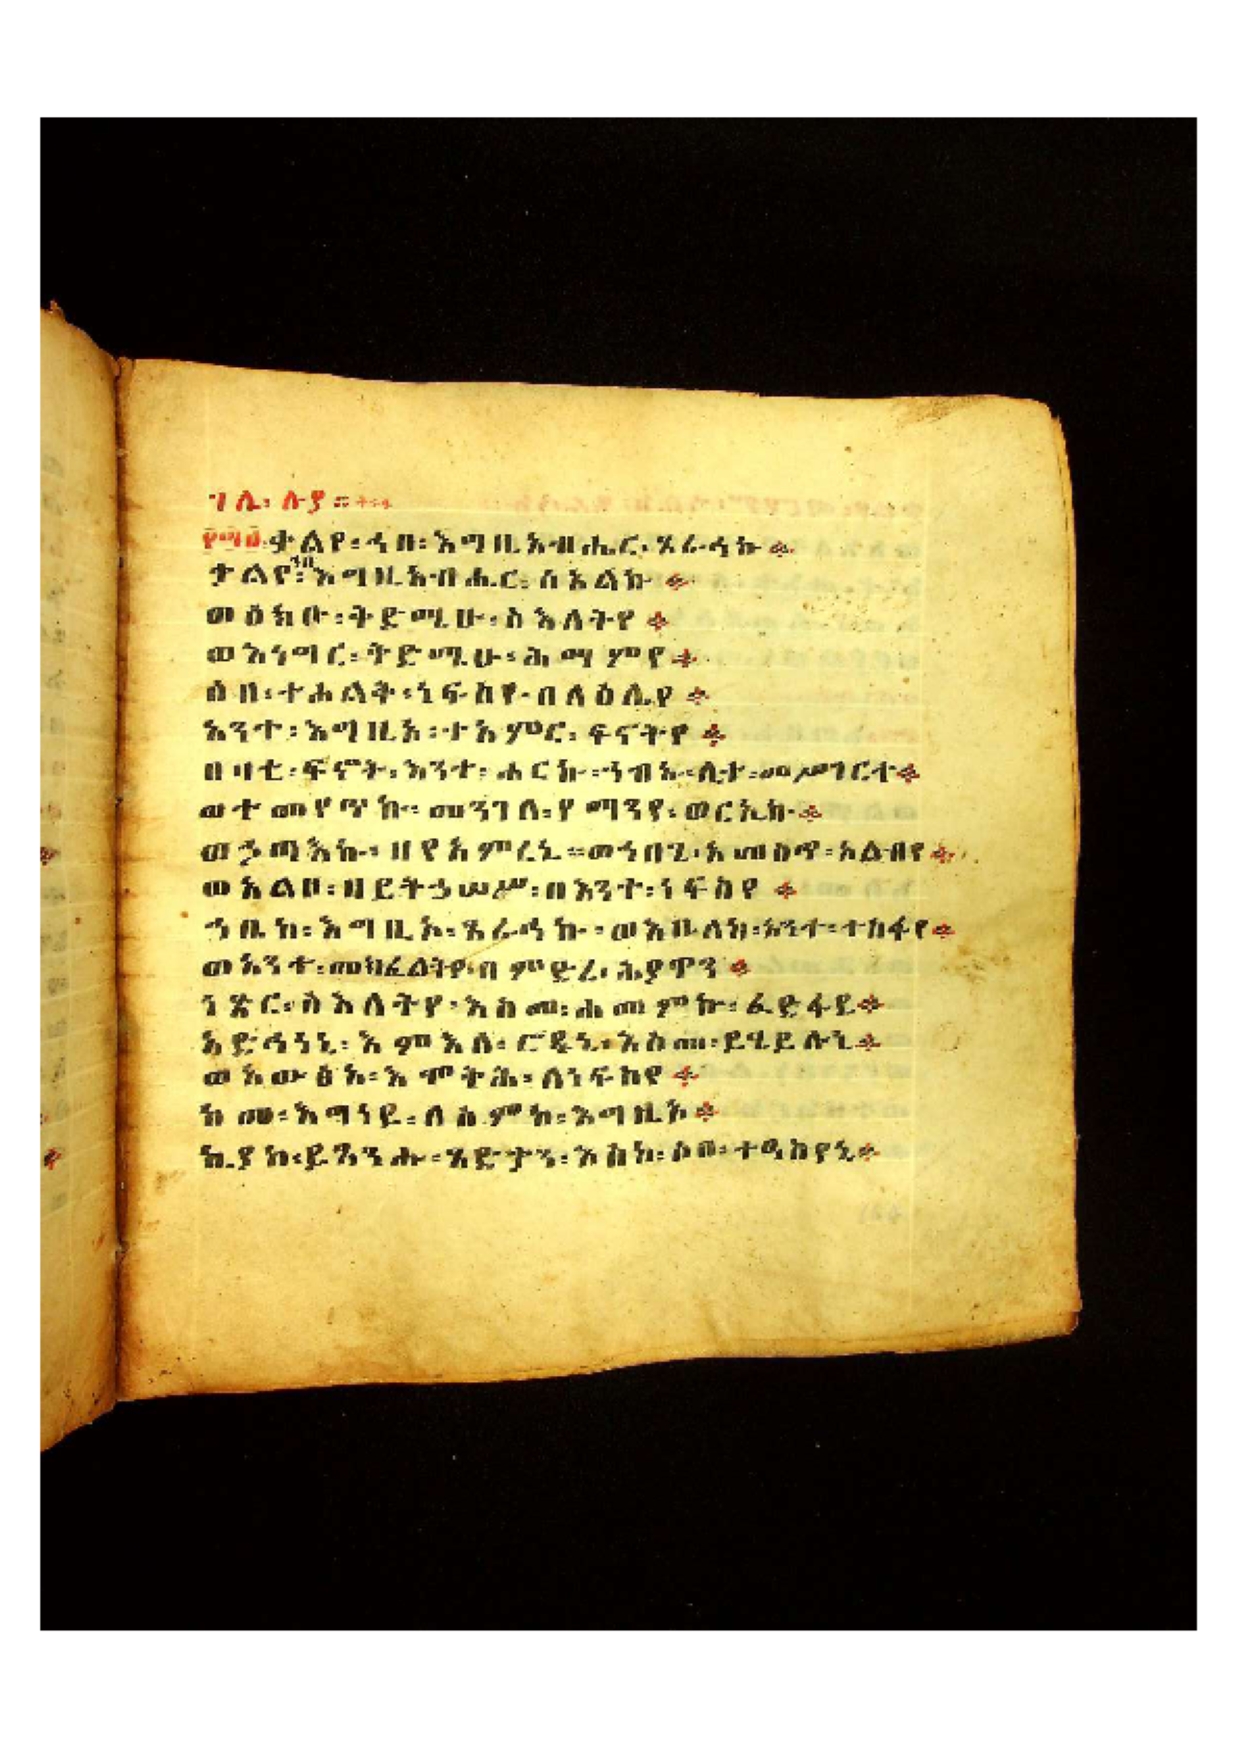 ገሊ፡ ሉያ። ።
፻፵፩ ቃልየ፡ ኀበ፡ እግዚአብሔር፡ ጸራኅኩ
ቃልየ፡ ኀበ እግዚአብሔር፡ ሰአልኩ
ወዕክቡ፡ ቅድሜሁ፡ ስእለትየ
ወእነግር፡ ቅድሜሁ፡ ሕማምየ
ሶበ፡ ተሐልቅ፡ ነፍስየ፡ በላዕሌየ
አንተ፡ እግዚአ፡ ተአምር፡ ፍናትየ
በዛቲ፡ ፍኖት፡ እንተ፡ ሖርኩ፡ ኀብኡ፡ ሊተ፡ መሥገርተ
ወተመየጥኩ፡ መንገለ፡ የማንየ፡ ወርኢኩ
ወኃጣእኩ፡ ዘየአምረኒ። ወኀበጊ፡ አመስጥ፡ አልብየ
ወአልቦ፡ ዘይትኃሠሥ፡ በእንተ፡ ነፍስየ
ኀቤከ፡ እግዚኦ፡ ጸራኅኩ፡ ወእቤለከ፡ አንተ፡ ተስፋየ
ወአንተ፡ መክፈልትየ፡ በምድረ፡ ሕያዋን
ነጽር፡ ስእለትየ፡ እስመ፡ ሐመምኩ፡ ፈድፋደ
አድኅነኒ፡ እምእለ፡ ሮዱኒ፡ እስመ፡ ይኄይሉኒ
ወአውፅኣ፡ እሞቅሕ፡ ለነፍስየ
ከመ፡ እግነይ፡ ለስምከ፡ እግዚኦ
ኪያከ፡ ይጸንሑ፡ ጻድቃን፡ እስከ፡ ሶበ፡ ተዓስየኒ